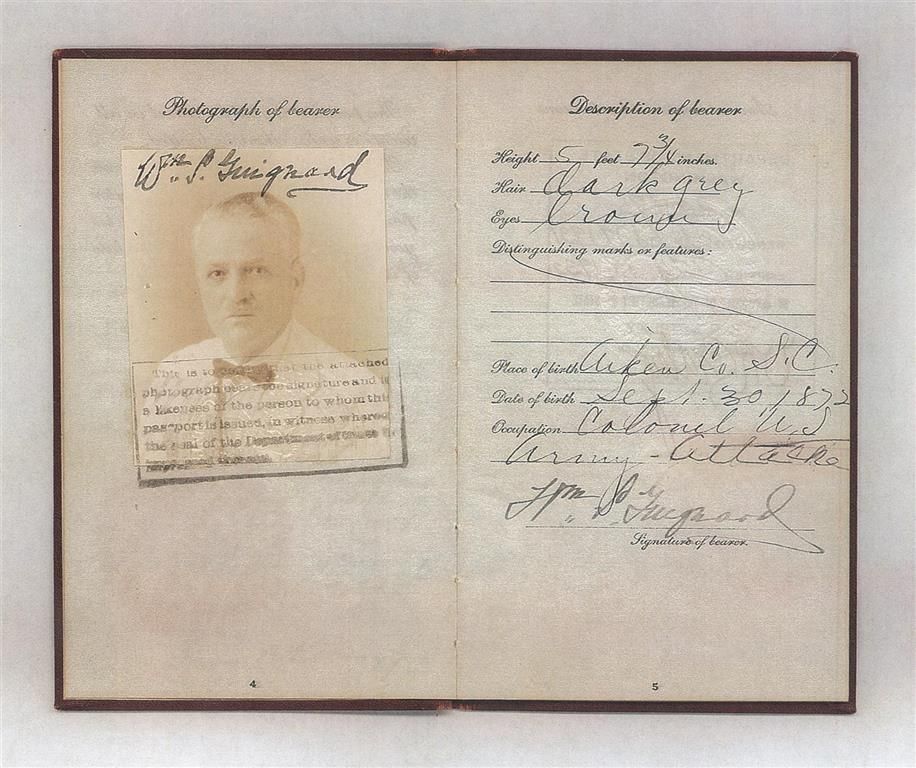 Photograph of bearer
Wm. S. Guignard
This is to certify that the attached
photograph bears the signature and is
a likeness of the person to whom this
passport is issued, in witness whereof
the seal of the Department of State is
4
Description of bearer
Height 5 feet 7 3/4 inches.
Hair dark grey
Eyes brown
Distinguishing marks or features:
Place of birth Aiken Co. S.C.
Date of birth Sept. 30, 1872
Occupation Colonel U.S.
Army - Attaché
Wm. S. Guignard
Signature of bearer.
5